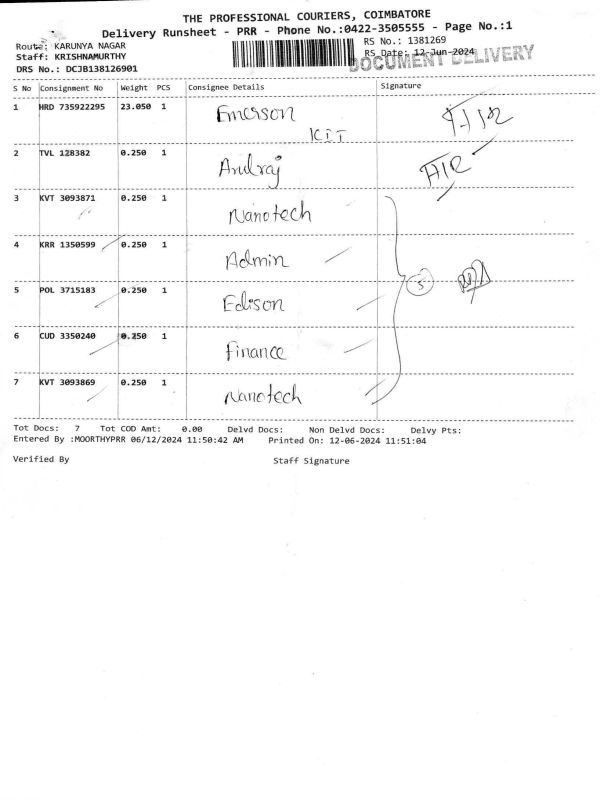 THE PROFESSIONAL COURIERS, COIMBATORE
Delivery Runsheet - PRR - Phone No.:0422-3505555 - Page No.:1
Route: KARUNYA NAGAR
RS No.: 1381269
Staff: KRISHNAMURTHY
RS Date: 12-Jun-2024
DOCUMENT DELIVERY
DRS No.: DCJB138126901
S No Consignment No Weight PCS Consignee Details Signature
1 HRD 735922295 23.050 1 Emerson
KIT
2 TVL 128382 0.250 1 Arulraj
3 KVT 3093871 0.250 1 Nanotech
4 KRR 1350599 0.250 1 Admin
5 POL 3715183 0.250 1 Edison
5
6 CUD 3350240 0.250 1 Finance
7 KVT 3093869 0.250 1 Nanotech
Tot Docs: 7 Tot COD Amt: 0.00 Delvd Docs: Non Delvd Docs: Delvy Pts:
Entered By :MOORTHYPRR 06/12/2024 11:50:42 AM Printed On: 12-06-2024 11:51:04
Verified By Staff Signature